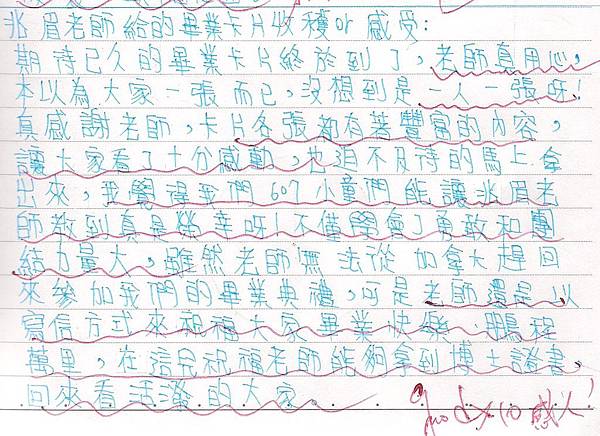 兆眉老師給的畢業卡片收穫or感受:
期待已久的畢業卡片終於到了,老師真用心,
本以為大家一張而已,沒想到是一人一張呀!
真感謝老師,卡片各張都有著豐富的內容,
讓大家看了十分感動,也迫不及待的馬上拿
出來,我覺得我們607小童們能讓兆眉老
師教到真是榮幸呀!不僅學會了勇敢和團
結力量大,雖然老師無法從加拿大趕回
來參加我們的畢業典禮,可是老師還是以
寫信方式來祝福大家畢業快樂、鵬程
萬里,在這兒祝福老師能夠拿到博士證書,
回來看活潑的大家。
感人!